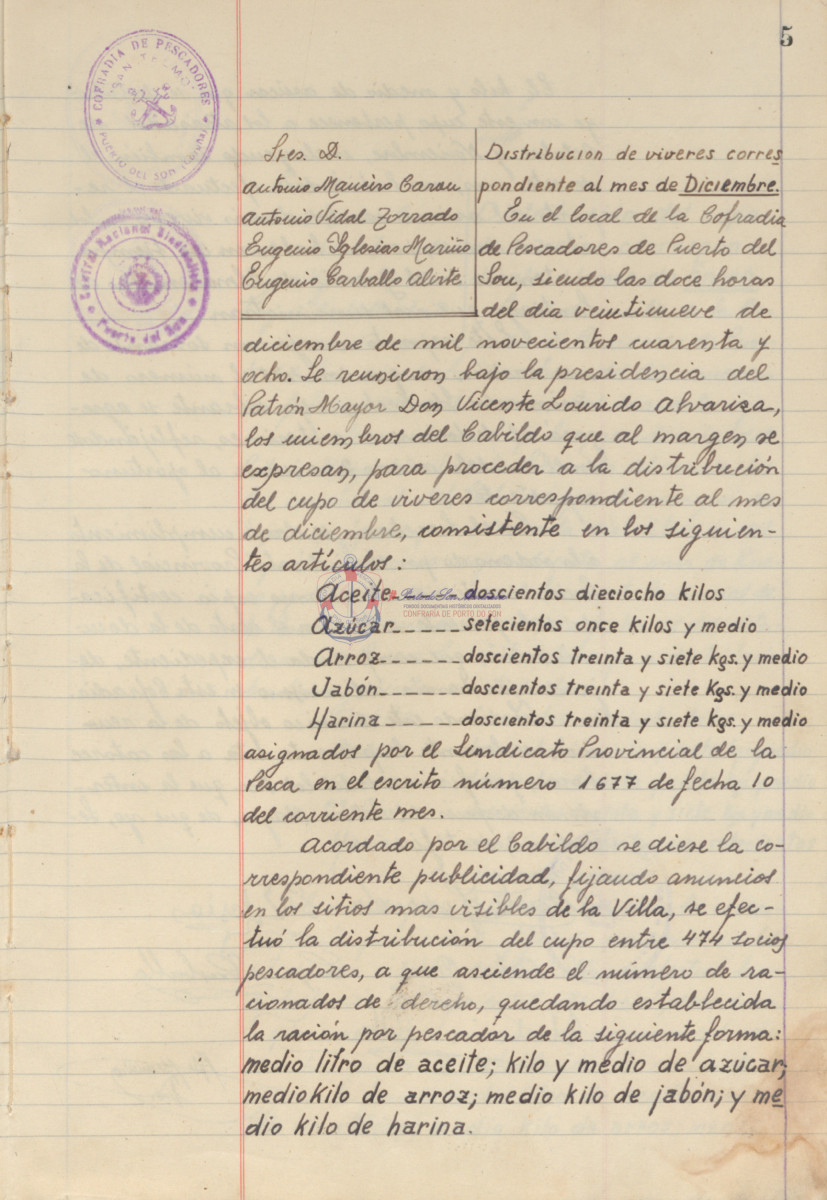 5
COFRADIA DE PESCADORES
"SAN TELMO"
PUERTO DEL SON
Central Nacional Sindicalista
Puerto del Son
Sres. D.
Antonio Maneiro Carou
Antonio Vidal Zorrado
Eugenio Iglesias Mariño
Eugenio Carballo Alvite
Distribucion de viveres corres
pondiente al mes de Diciembre.
En el local de la Cofradia
de Pescadores de Puerto del
Son, siendo las doce horas
del dia veintinueve de
diciembre de mil novecientos cuarenta y
ocho. Se reunieron bajo la presidencia del
Patrón Mayor Don Vicente Lourido Alvariza,
los miembros del Cabildo que al margen se
expresan, para proceder a la distribución
del cupo de viveres correspondiente al mes
de diciembre, consistente en los siguien-
tes artículos:
Aceite doscientos dieciocho kilos
FONDOS DOCUMENTAIS HISTÓRICOS DIXITALIZADOS
CONFRARIA DE PORTO DO SON
Azúcar------ setecientos once kilos y medio
Arroz------ doscientos treinta y siete kgs. y medio
Jabón------ doscientos treinta y siete kgs. y medio
Harina------ doscientos treinta y siete kgs. y medio
asignados por el Sindicato Provincial de la
Pesca en el escrito número 1677 de fecha 10
del corriente mes.
Acordado por el Cabildo se diese la co-
rrespondiente publicidad, fijando anuncios
en los sitios mas visibles de la Villa, se efec-
tuó la distribución del cupo entre 474 socios
pescadores, a que asciende el número de ra-
cionados de derecho, quedando establecida
la ración por pescador de la siguiente forma:
medio litro de aceite; kilo y medio de azúcar;
medio kilo de arroz; medio kilo de jabón; y me
dio kilo de harina.